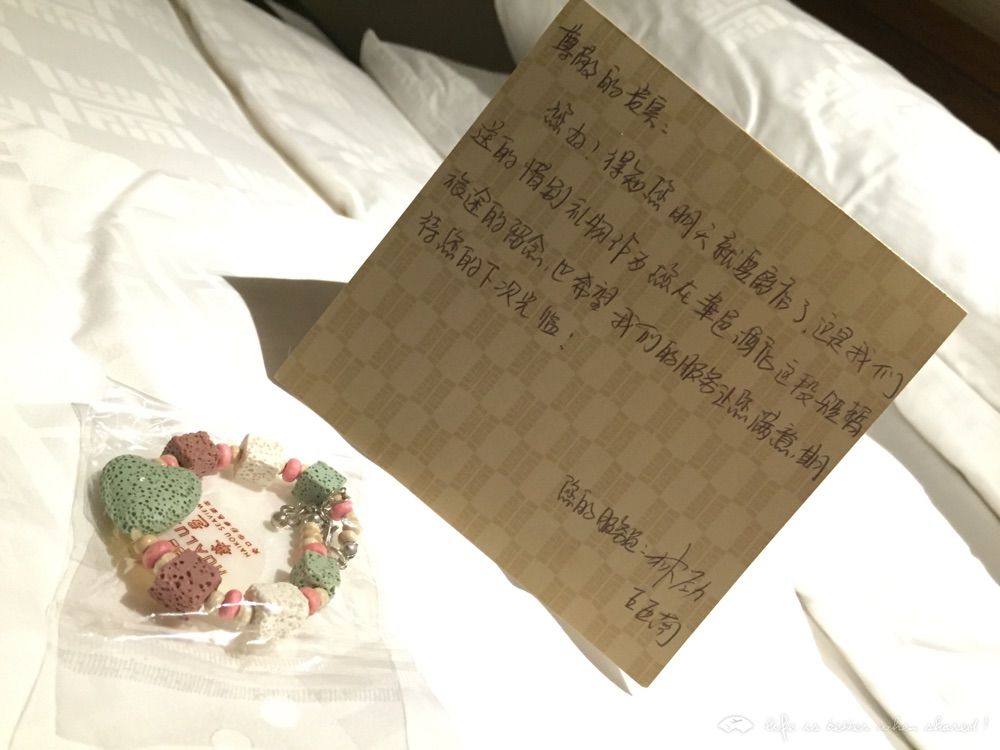 尊敬的贵宾:
您好,得知您明天就要离店了,这是我们
送的情郎礼物作为您在华邑酒店这段短暂
旅途的留念,也希望我们的服务让您满意,期
待您的下次光临!
您的服务员:林
HUALU
华邑
HAIKOU SEAVIEW
life is better when shared!